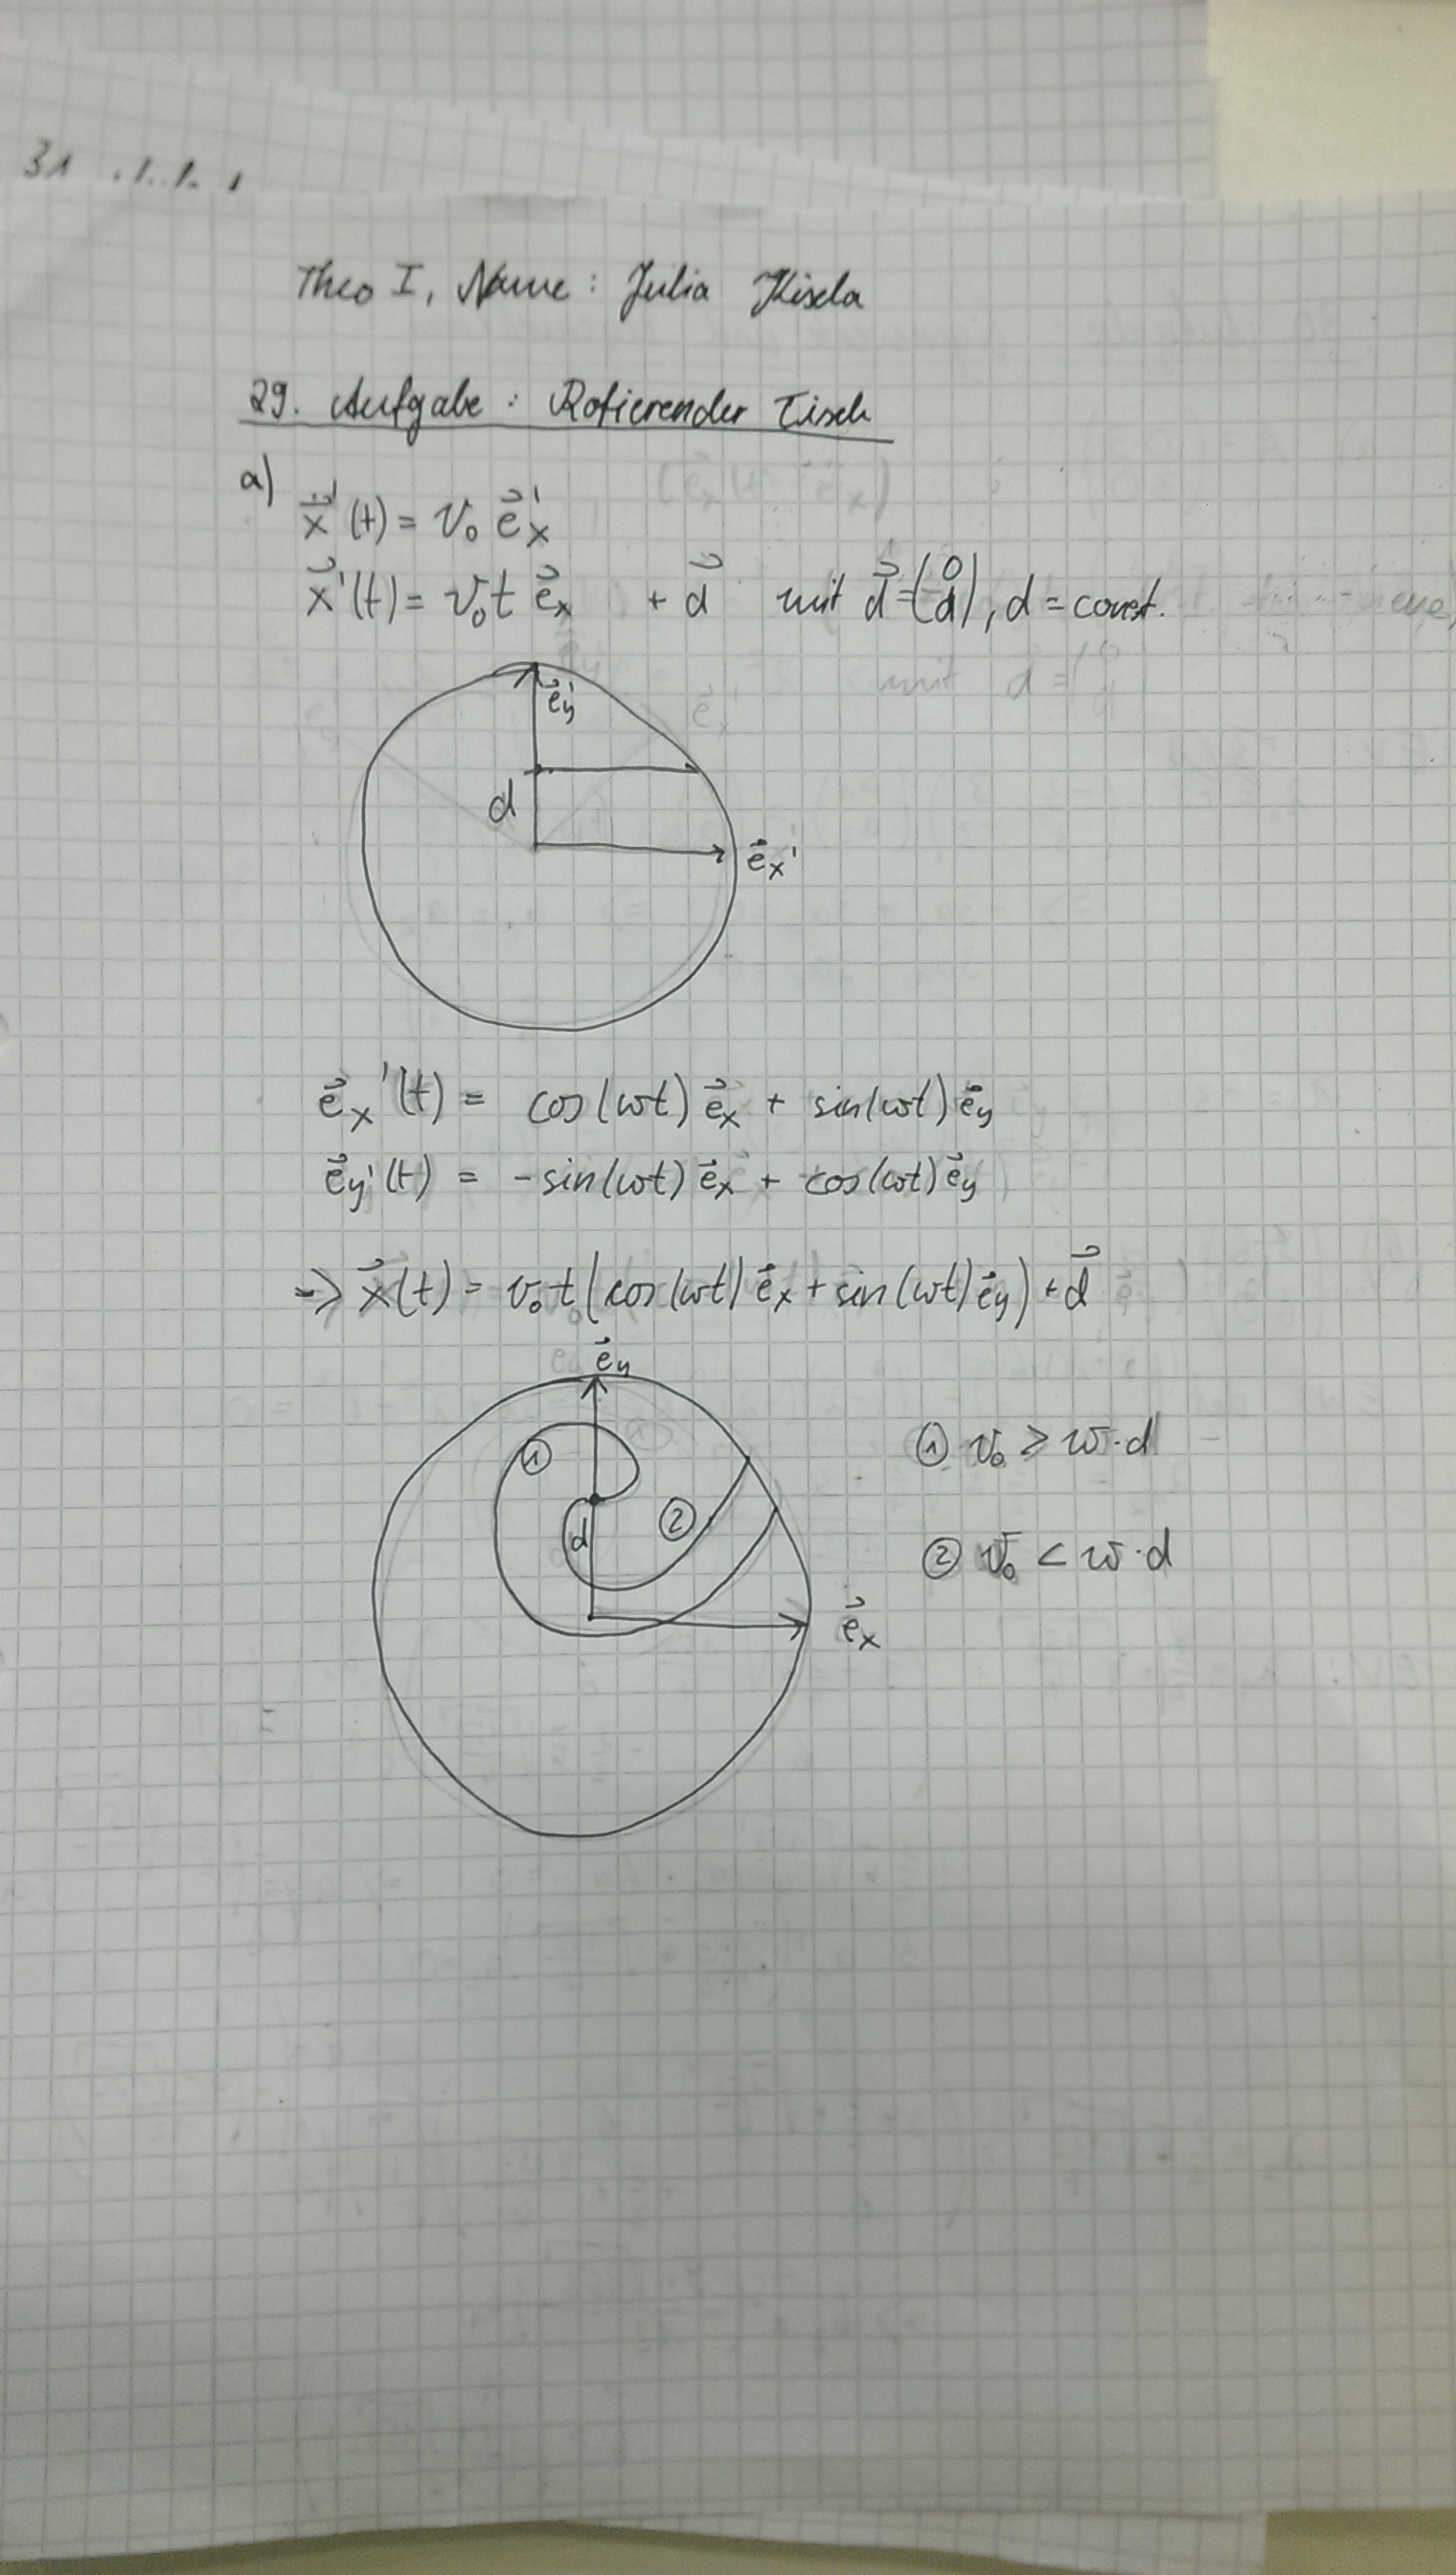 31
Theo I, Name: Julia Kisela
29. Aufgabe: Rotierender Tisch
a) ẋ⃗'(t) = v₀ e⃗ₓ'
x⃗'(t) = v₀t e⃗ₓ + d⃗ mit d⃗ = (0 d), d = const.
e⃗y'
d
e⃗ₓ'
e⃗ₓ'(t) = cos(ωt) e⃗ₓ + sin(ωt) e⃗y
e⃗y'(t) = -sin(ωt) e⃗ₓ + cos(ωt) e⃗y
=> x⃗(t) = v₀t (cos(ωt) e⃗ₓ + sin(ωt) e⃗y) + d⃗
e⃗y
① ① v₀ ≥ ω·d
d ② ② v₀ < ω·d
e⃗ₓ
=